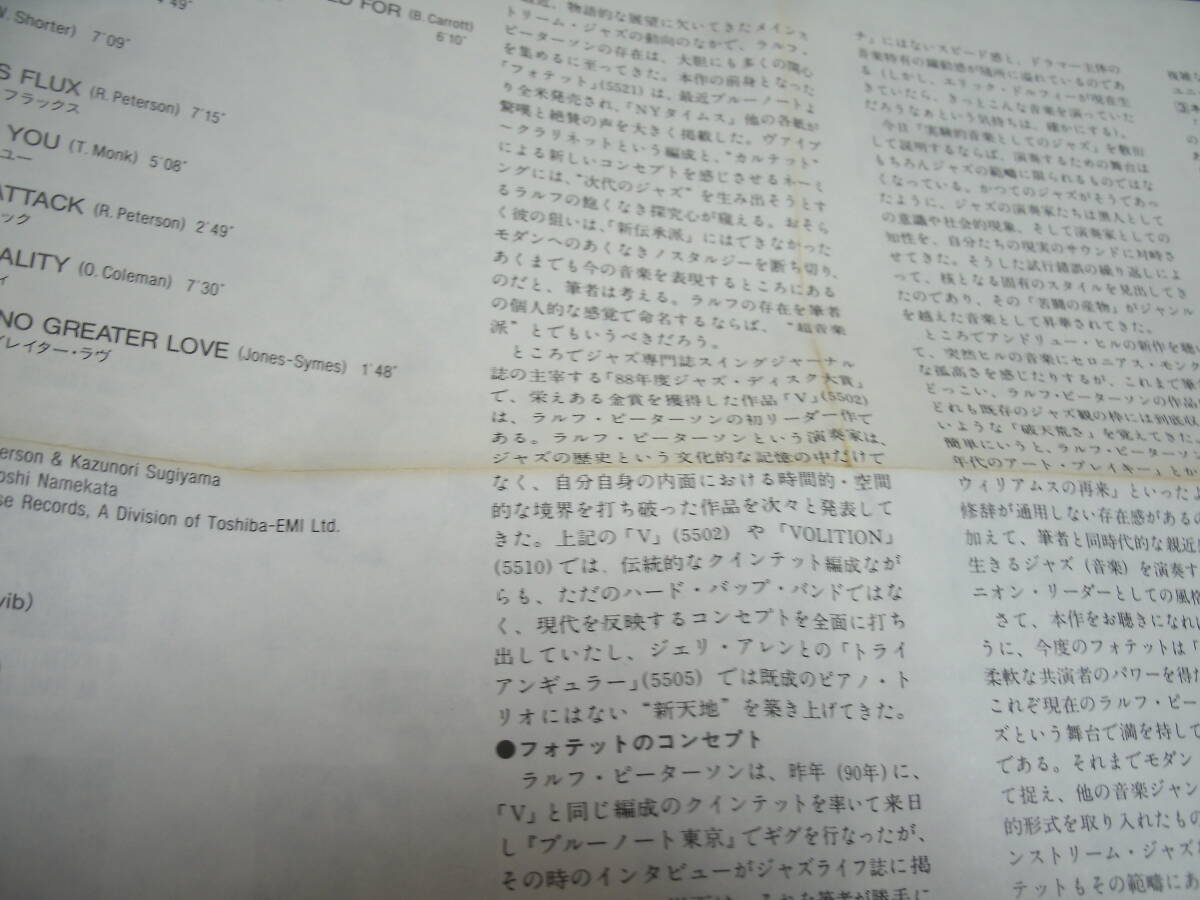 4'49"
FOR (B. Carrott)
6'10"
W. Shorter) 7'09"
S FLUX (R. Peterson) 7'15"
フラックス
YOU (T. Monk) 5'08"
ユー
ATTACK (R. Peterson) 2'49"
ック
ALITY (O. Coleman) 7'30"
ィ
NO GREATER LOVE (Jones-Symes) 1'48"
グレイター・ラヴ
erson & Kazunori Sugiyama
oshi Namekata
se Records, A Division of Toshiba-EMI Ltd.
vib)
最近、物語的な展望に欠いてきたメインス
トリーム・ジャズの動向のなかで、ラルフ・
ピーターソンの存在は、大胆にも多くの関心
を集めるに至ってきた。本作の前身となった
「フォテット」(5521)は、最近ブルーノートよ
り全米発売され、「NYタイムス」他の各紙が
驚嘆と絶賛の声を大きく掲載した。ヴァイブ
〜クラリネットという編成と、"カルテット"
による新しいコンセプトを感じさせるネーミ
ングには、"次代のジャズ" を生み出そうとす
るラルフの飽くなき探究心が窺える。おそら
く彼の狙いは、「新伝承派」にはできなかった
モダンへのあくなきノスタルジーを断ち切り、
あくまでも今の音楽を表現するところにある
のだと、筆者は考える。ラルフの存在を筆者
の個人的な感覚で命名するならば、"超音楽
派" とでもいうべきだろう。
ところでジャズ専門誌スイングジャーナル
誌の主宰する「88年度ジャズ・ディスク大賞」
で、栄えある金賞を獲得した作品「V」(5502)
は、ラルフ・ピーターソンの初リーダー作で
ある。ラルフ・ピーターソンという演奏家は、
ジャズの歴史という文化的な記憶の中だけで
なく、自分自身の内面における時間的・空間
的な境界を打ち破った作品を次々と発表して
きた。上記の「V」(5502) や「VOLITION」
(5510)では、伝統的なクインテット編成なが
らも、ただのハード・バップ・バンドではな
く、現代を反映するコンセプトを全面に打ち
出していたし、ジェリ・アレンとの「トライ
アンギュラー」(5505) では既成のピアノ・ト
リオにはない "新天地" を築き上げてきた。
●フォテットのコンセプト
ラルフ・ピーターソンは、昨年 (90年) に、
「V」と同じ編成のクインテットを率いて来日
し『ブルーノート東京』でギグを行なったが、
その時のインタビューがジャズライフ誌に掲
チ」にはないスピード感と、ドラマー主体の
音楽特有の躍動感が随所に溢れているのであ
る (しかし、エリック・ドルフィーが現在生
きていたら、きっとこんな音楽を演っていた
だろうなぁという気持ちは、確かにする)。
今日「実験的音楽としてのジャズ」を敷衍
して説明するならば、演奏するための舞台は
もちろんジャズの範疇に限られるものではな
くなっている。かつてのジャズがそうであっ
たように、ジャズの演奏家たちは黒人として
の意識や社会的現象、そして演奏家としての
知性を、自分たちの現実のサウンドに対峙さ
せてきた。そうした試行錯誤の繰り返しによ
って、核となる固有のスタイルを見出してき
たのであり、その「苦闘の産物」がジャンル
を越えた音楽として昇華されてきた。
ところでアンドリュー・ヒルの新作を聴い
て、突然ヒルの音楽にセロニアス・モンク
な孤高さを感じたりするが、これまで筆
どっこい、ラルフ・ピーターソンの作品
どれも既存のジャズ観の枠には到底収
いような「破天荒さ」を覚えてきた
簡単にいうと、ラルフ・ピーターソン
年代のアート・ブレイキー」とか
ウィリアムスの再来」といった
修辞が通用しない存在感があるの
加えて、筆者と同時代的な親近
生きるジャズ (音楽) を演奏す
ニオン・リーダーとしての風格
さて、本作をお聴きになれば
うに、今度のフォテットは「
柔軟な共演者のパワーを得た
これぞ現在のラルフ・ピー
ズという舞台で満を持して
である。それまでモダン
て捉え、他の音楽ジャン
的形式を取り入れたもの
ンストリーム・ジャズ
テットもその範疇にあ
複雑
ユニ
の